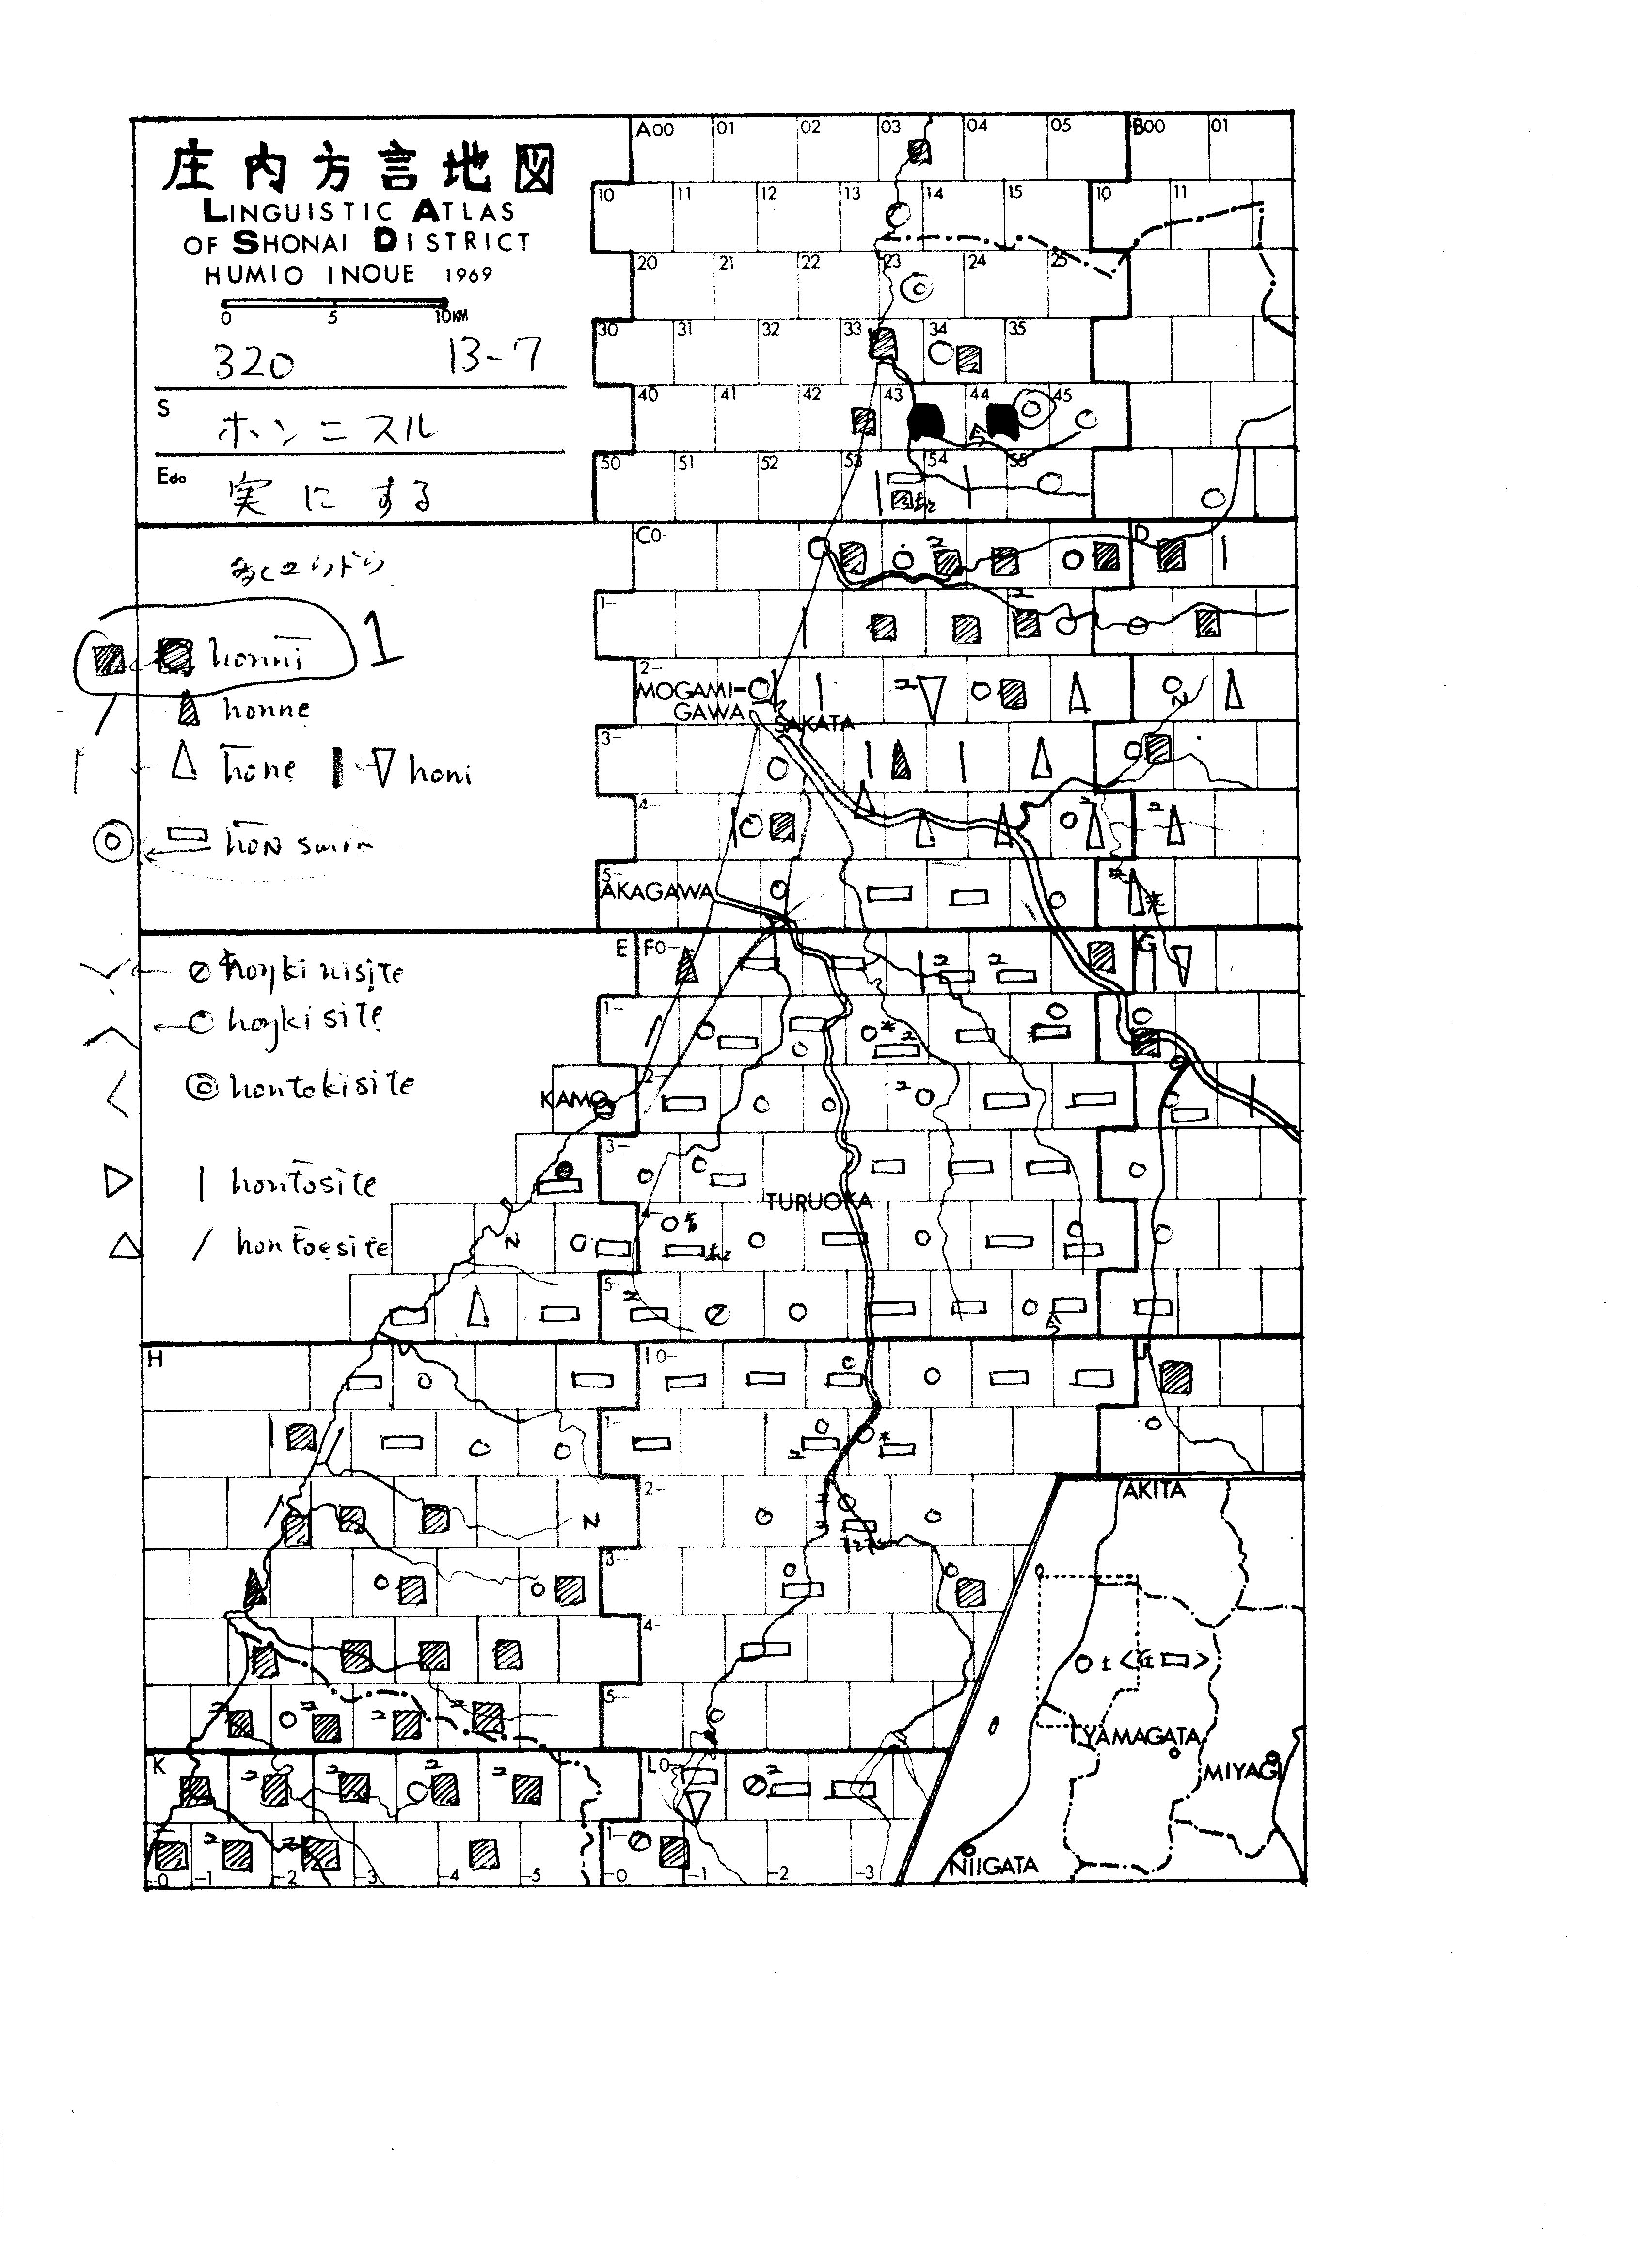 庄内方言地図
LINGUISTIC ATLAS
OF SHONAI DISTRICT
HUMIO INOUE 1969
0 5 10KM
320 13-7
S ホンニスル
Edo 実にする
1
honni
honne
hone honi
hoN
honkisite
hontokisite
hontosite
hontoesite
A00 01 02 03 04 05 B00 01
10 11 12 13 14 15 10 11
20 21 22 23 24 25
30 31 32 33 34 35
40 41 42 43 44 45
50 51 52 53 54 55
C0- D
1-
2-
MOGAMI-
GAWA
SAKATA
3-
4-
5-
AKAGAWA
E F0- G
1-
2-
KAMO
3-
TURUOKA
N
5-
H I0-
1-
2-
N
3-
4-
5-
K L0-
1-
-0 -1 -2 -3 -4 -5 -0 -1 -2 -3
AKITA
YAMAGATA
MIYAGI
NIIGATA